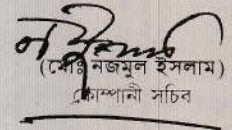 (মোঃ নজমুল ইসলাম)
কোম্পানী সচিব